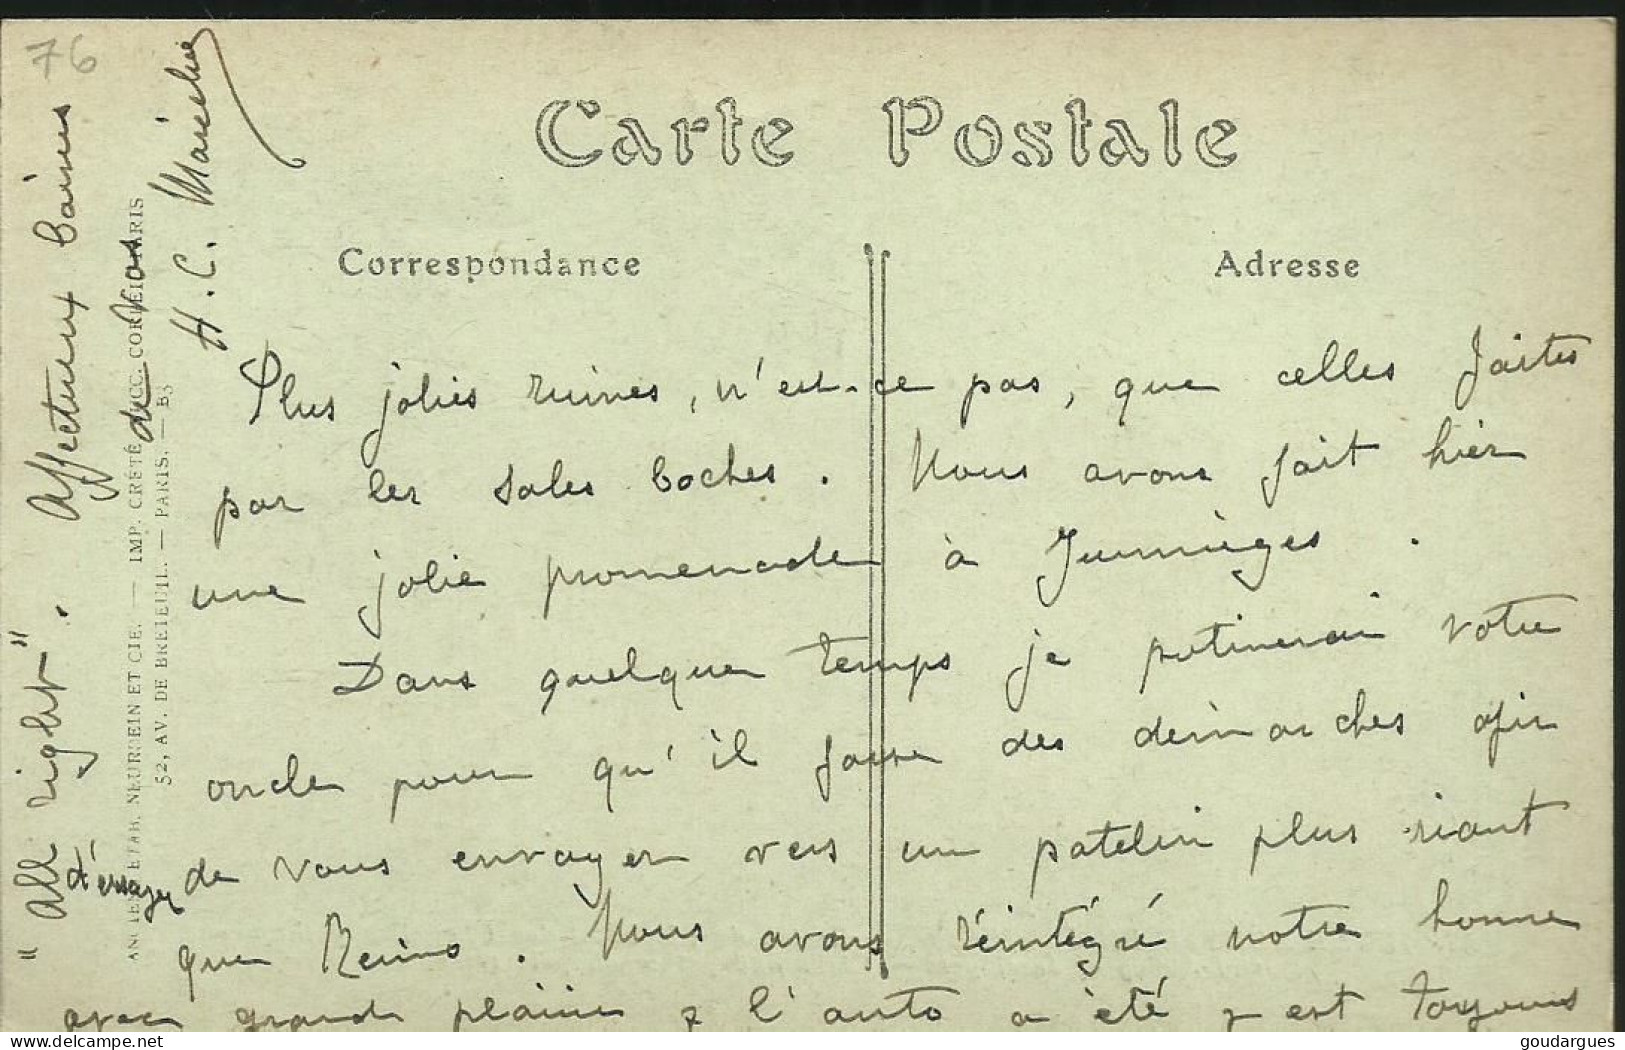 76
Carte Postale
Correspondance
Adresse
Plus jolies ruines, n'est-ce pas, que celles faites
par les sales boches. Nous avons fait hier
une jolie promenade à Jumièges.
Dans quelques temps je patinerai votre
oncle pour qu'il fasse des démarches afin
d'essayer
de vous envoyer vers un patelin plus riant
que Reims. Nous avons réintégré notre home
avec grand plaisir & l'auto a été & est toujours
"All right". Affectueux baisers
de vos
H. C.
ANCIENS ETAB. NEURDEIN ET CIE. — IMP. CRÉTÉ SUCC. CORBEIL-PARIS
52, AV. DE BRETEUIL. — PARIS. — B3
goudargues
delcampe.net